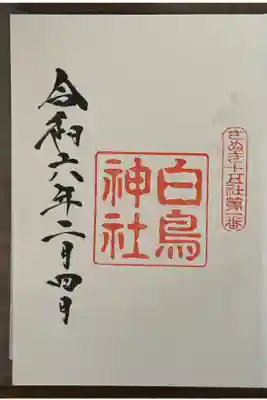 さぬき十五社第一番
白鳥
神社
令和六年二月四日